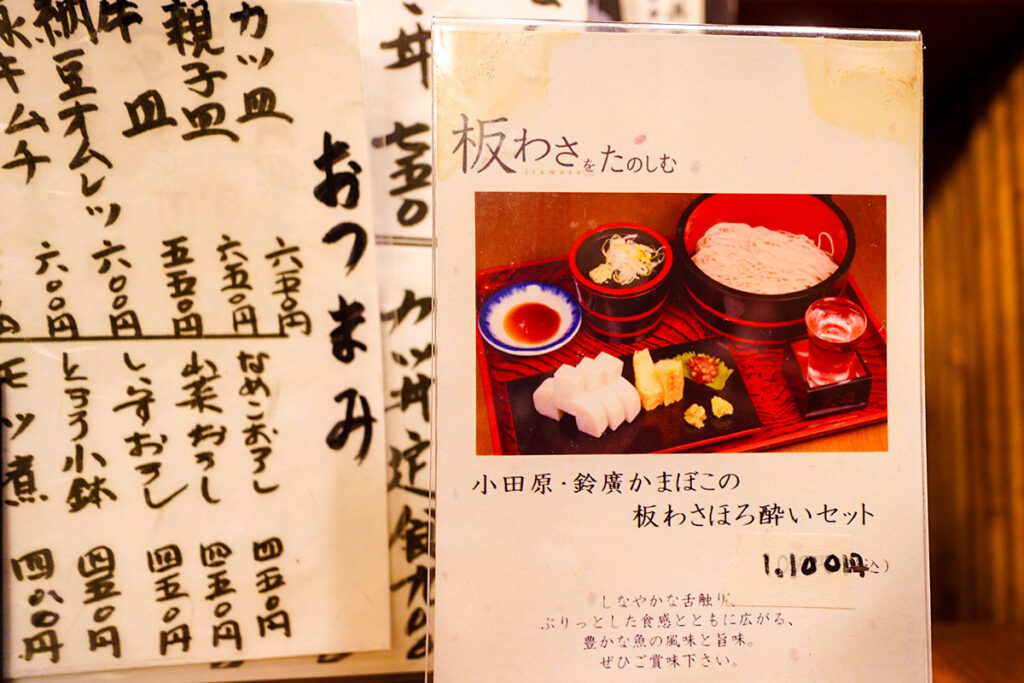 おつまみ
カツ皿
六五〇円
親子皿
六五〇円
牛皿
五五〇円
納豆オムレツ
六〇〇円
キムチ
六〇〇円
なめこおろし
四五〇円
山菜おろし
四五〇円
しらすおろし
四五〇円
とろろ小鉢
四五〇円
モツ煮
四八〇円
丼 七五〇
カツ丼定食九〇〇
板わさをたのしむ
itawasa
小田原・鈴廣かまぼこの
板わさほろ酔いセット
1,100円(税込)
しなやかな舌触り、
ぷりっとした食感とともに広がる、
豊かな魚の風味と旨味。
ぜひご賞味下さい。